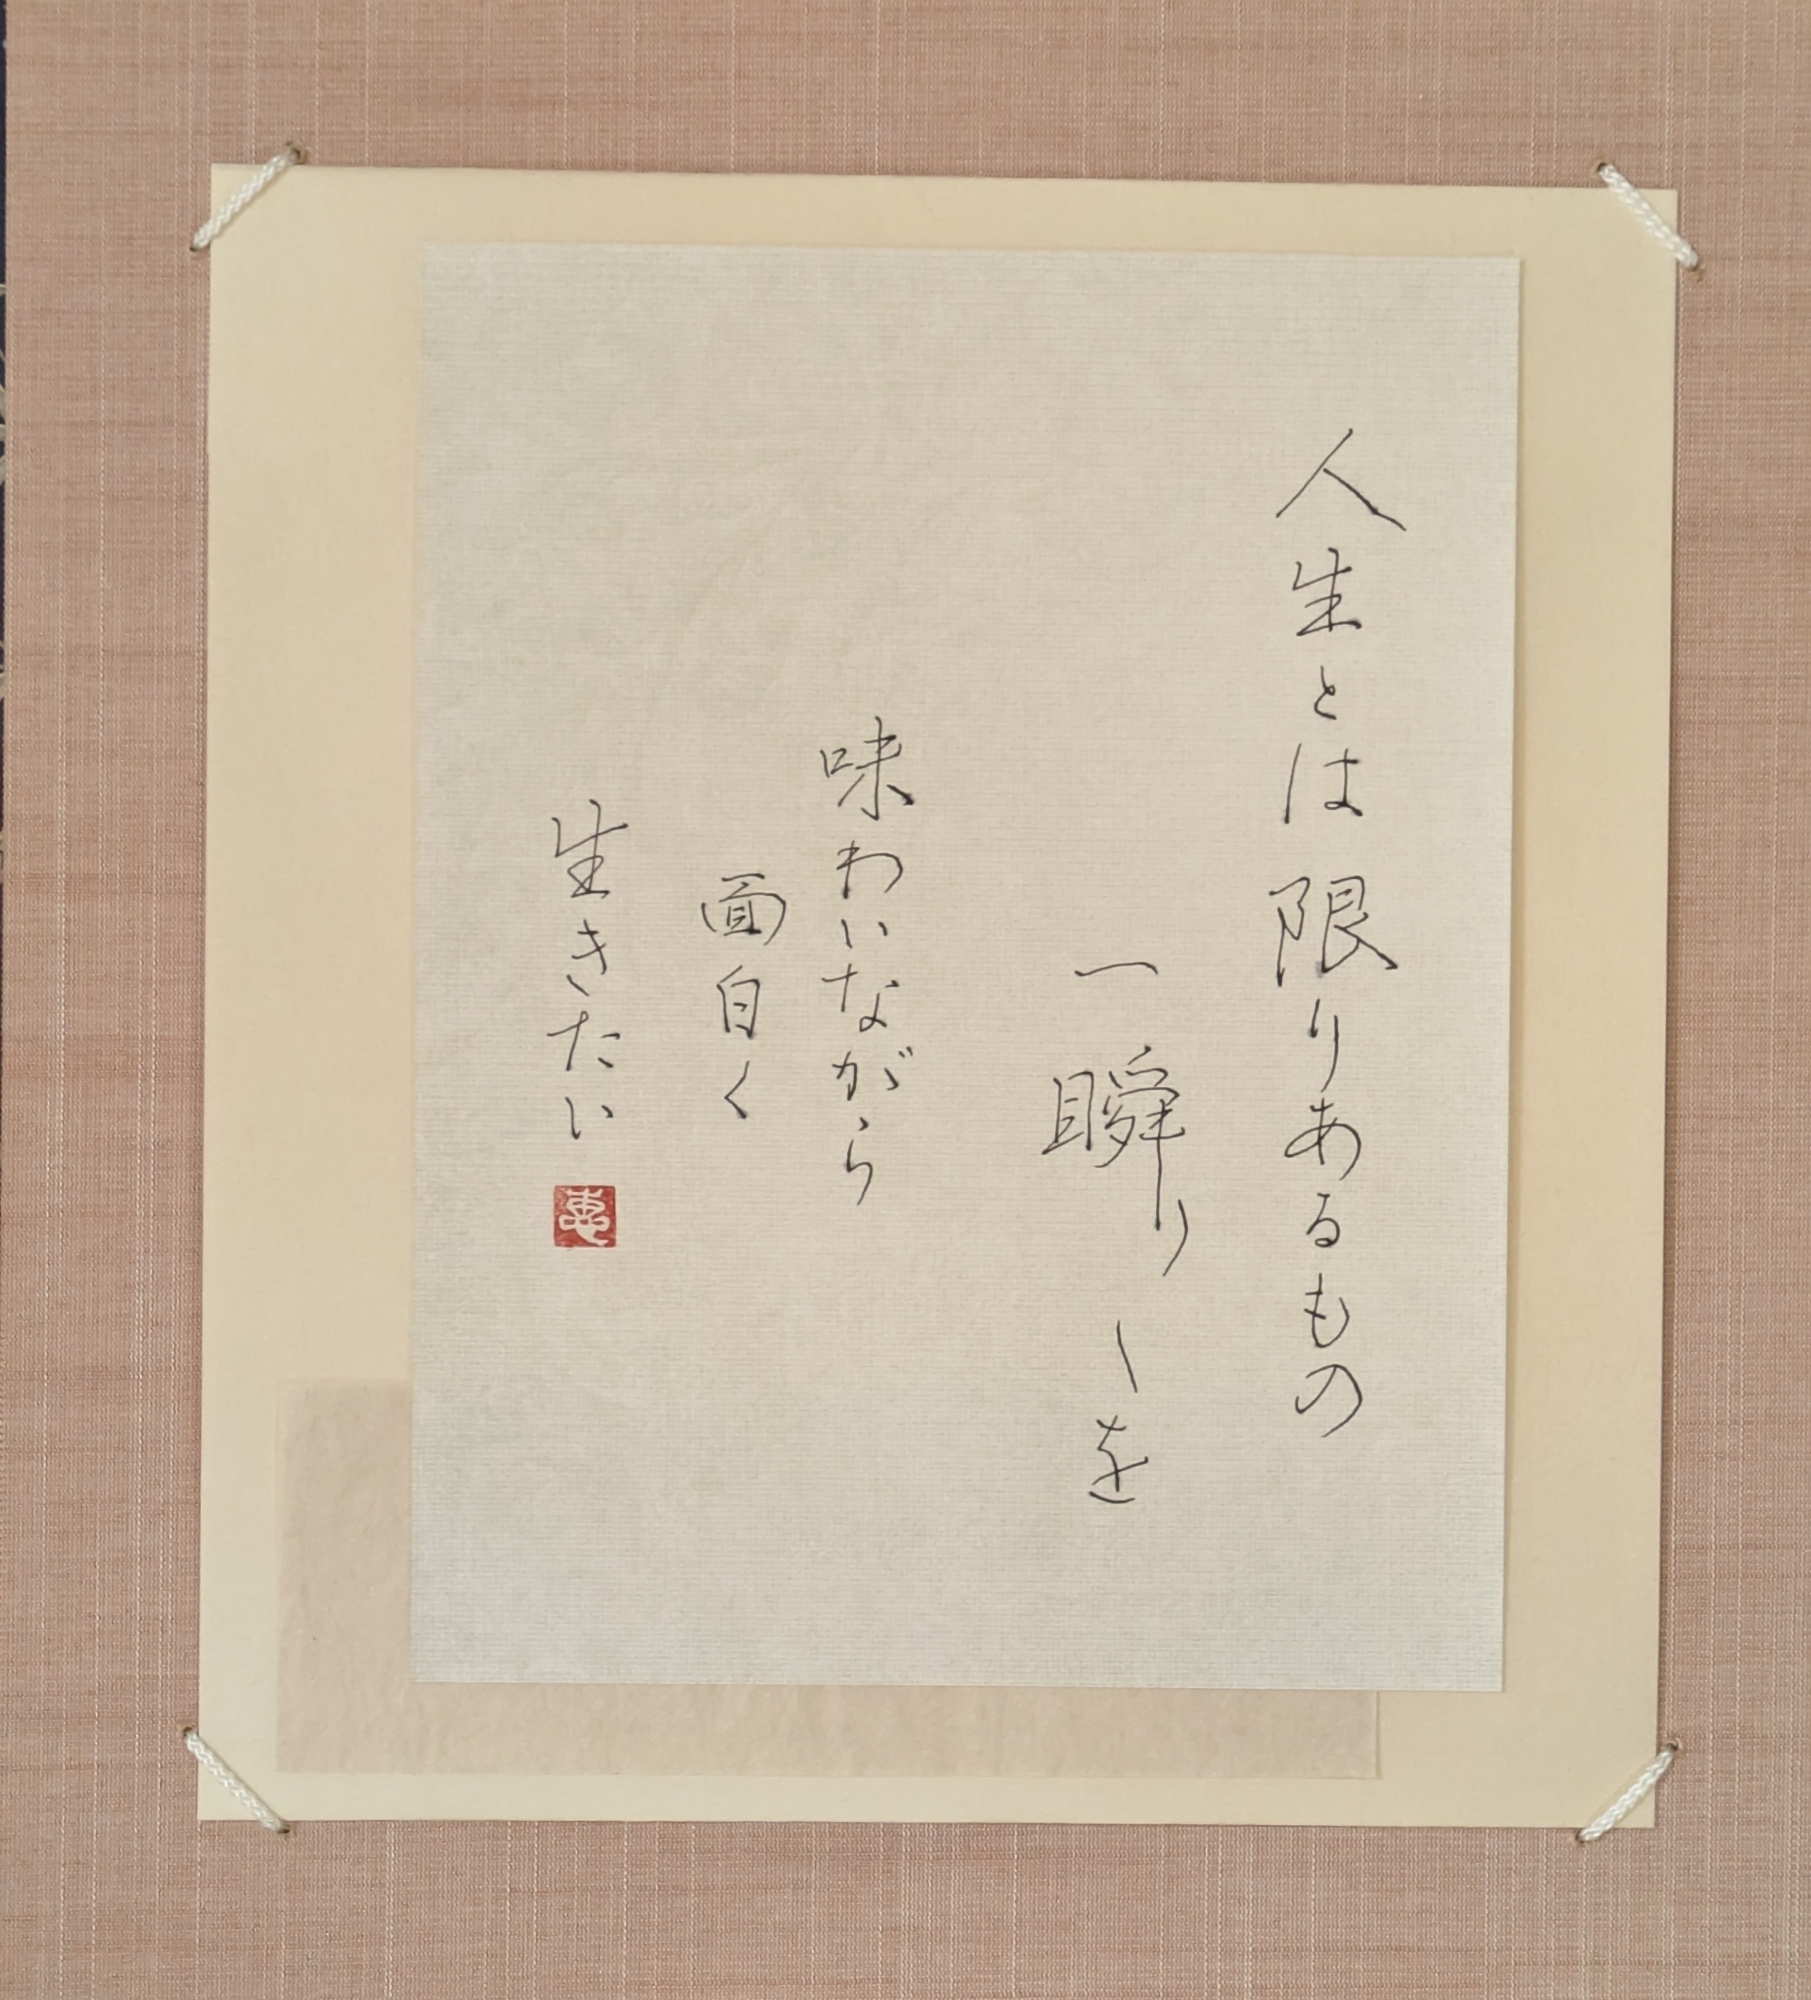 人生とは限りあるもの
一瞬〱を
味わいながら
面白く
生きたい
恵